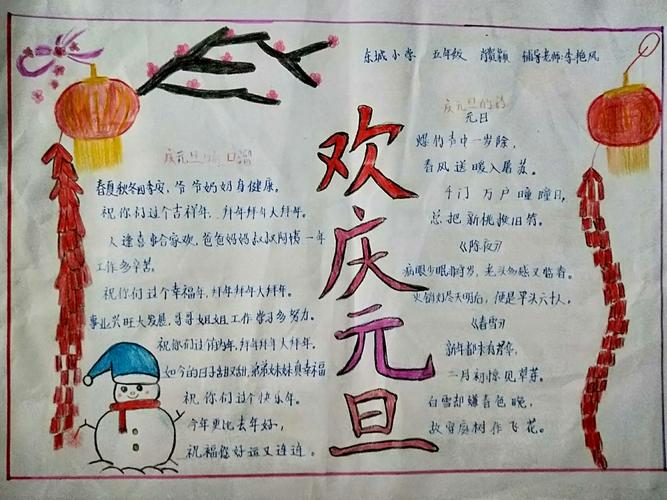 东城小学 五年级 辅导老师:李艳风
庆元旦的 口
春夏秋冬四季安，爷爷奶奶身健康。
祝你们过个吉祥年，拜年拜年大拜年。
人逢喜事合家欢，爸爸妈妈叔叔阿姨一年
工作多辛苦。
祝你们过个幸福年，拜年拜年大拜年。
事业兴旺大发展，哥哥姐姐工作学习多努力。
祝你们过个 年，拜年拜年大拜年。
如今的日子甜又甜，弟弟妹妹真幸福
祝你们过个快乐年。
今年更比去年好，
祝福您好运又连连。
欢庆元旦
庆元旦的诗
元日
爆竹声中一岁除，
春风送暖入屠苏。
千门万户曈曈日，
总把新桃换旧符。
《除夜》
病眼少眠非守岁，老头多感又临春。
火销灯尽天明后，便是平头六十人，
《春雪》
新年都未有芳华，
二月初惊见草芽。
白雪却嫌春色晚，
故穿庭树作飞花。